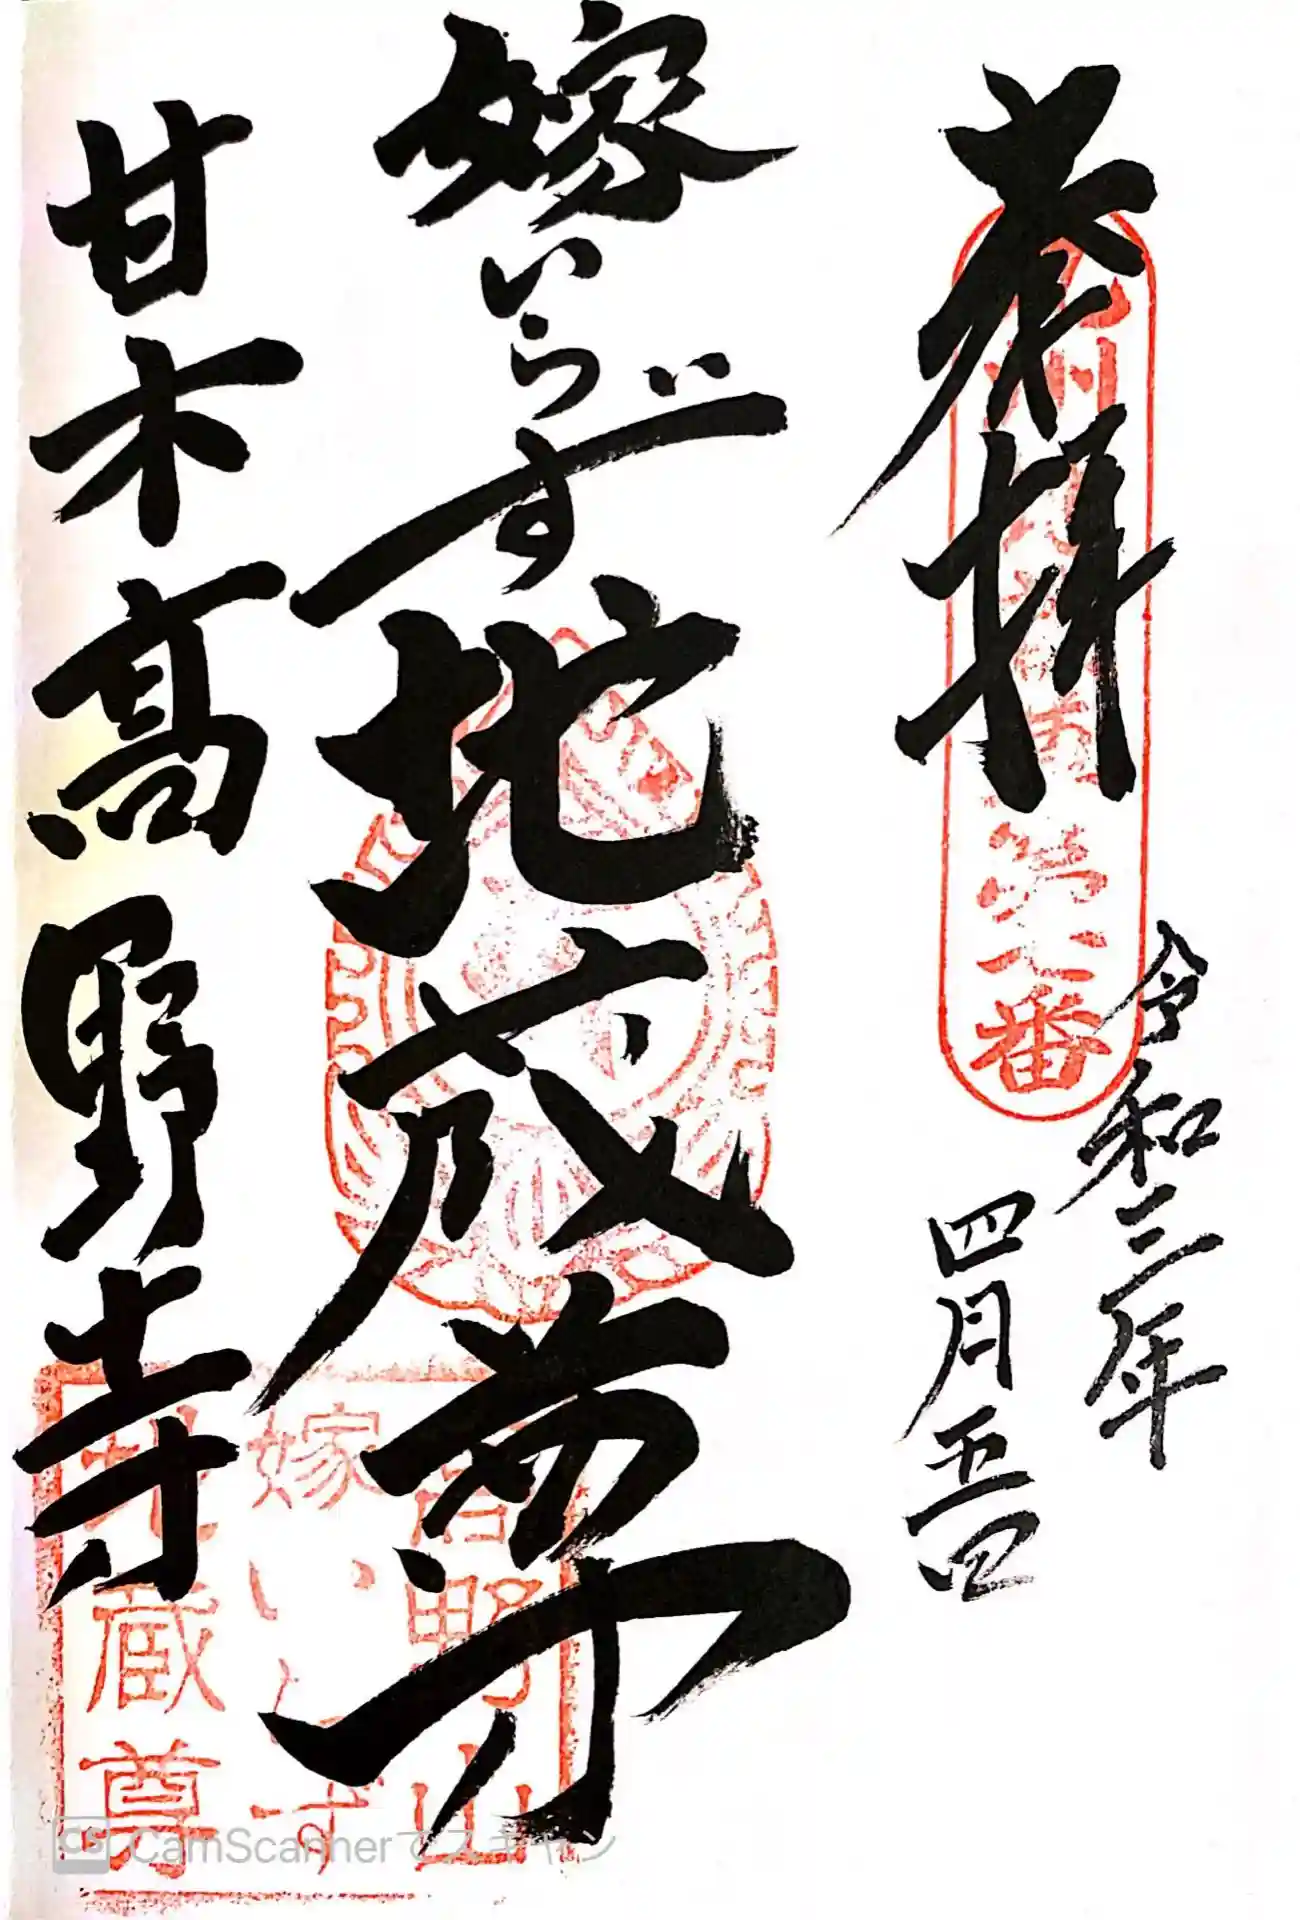 奉拝
令和三年
四月五日
嫁いらず地蔵尊
甘木高野寺
第六番
高野山
嫁いらず
地蔵尊
CS CamScannerでスキャン